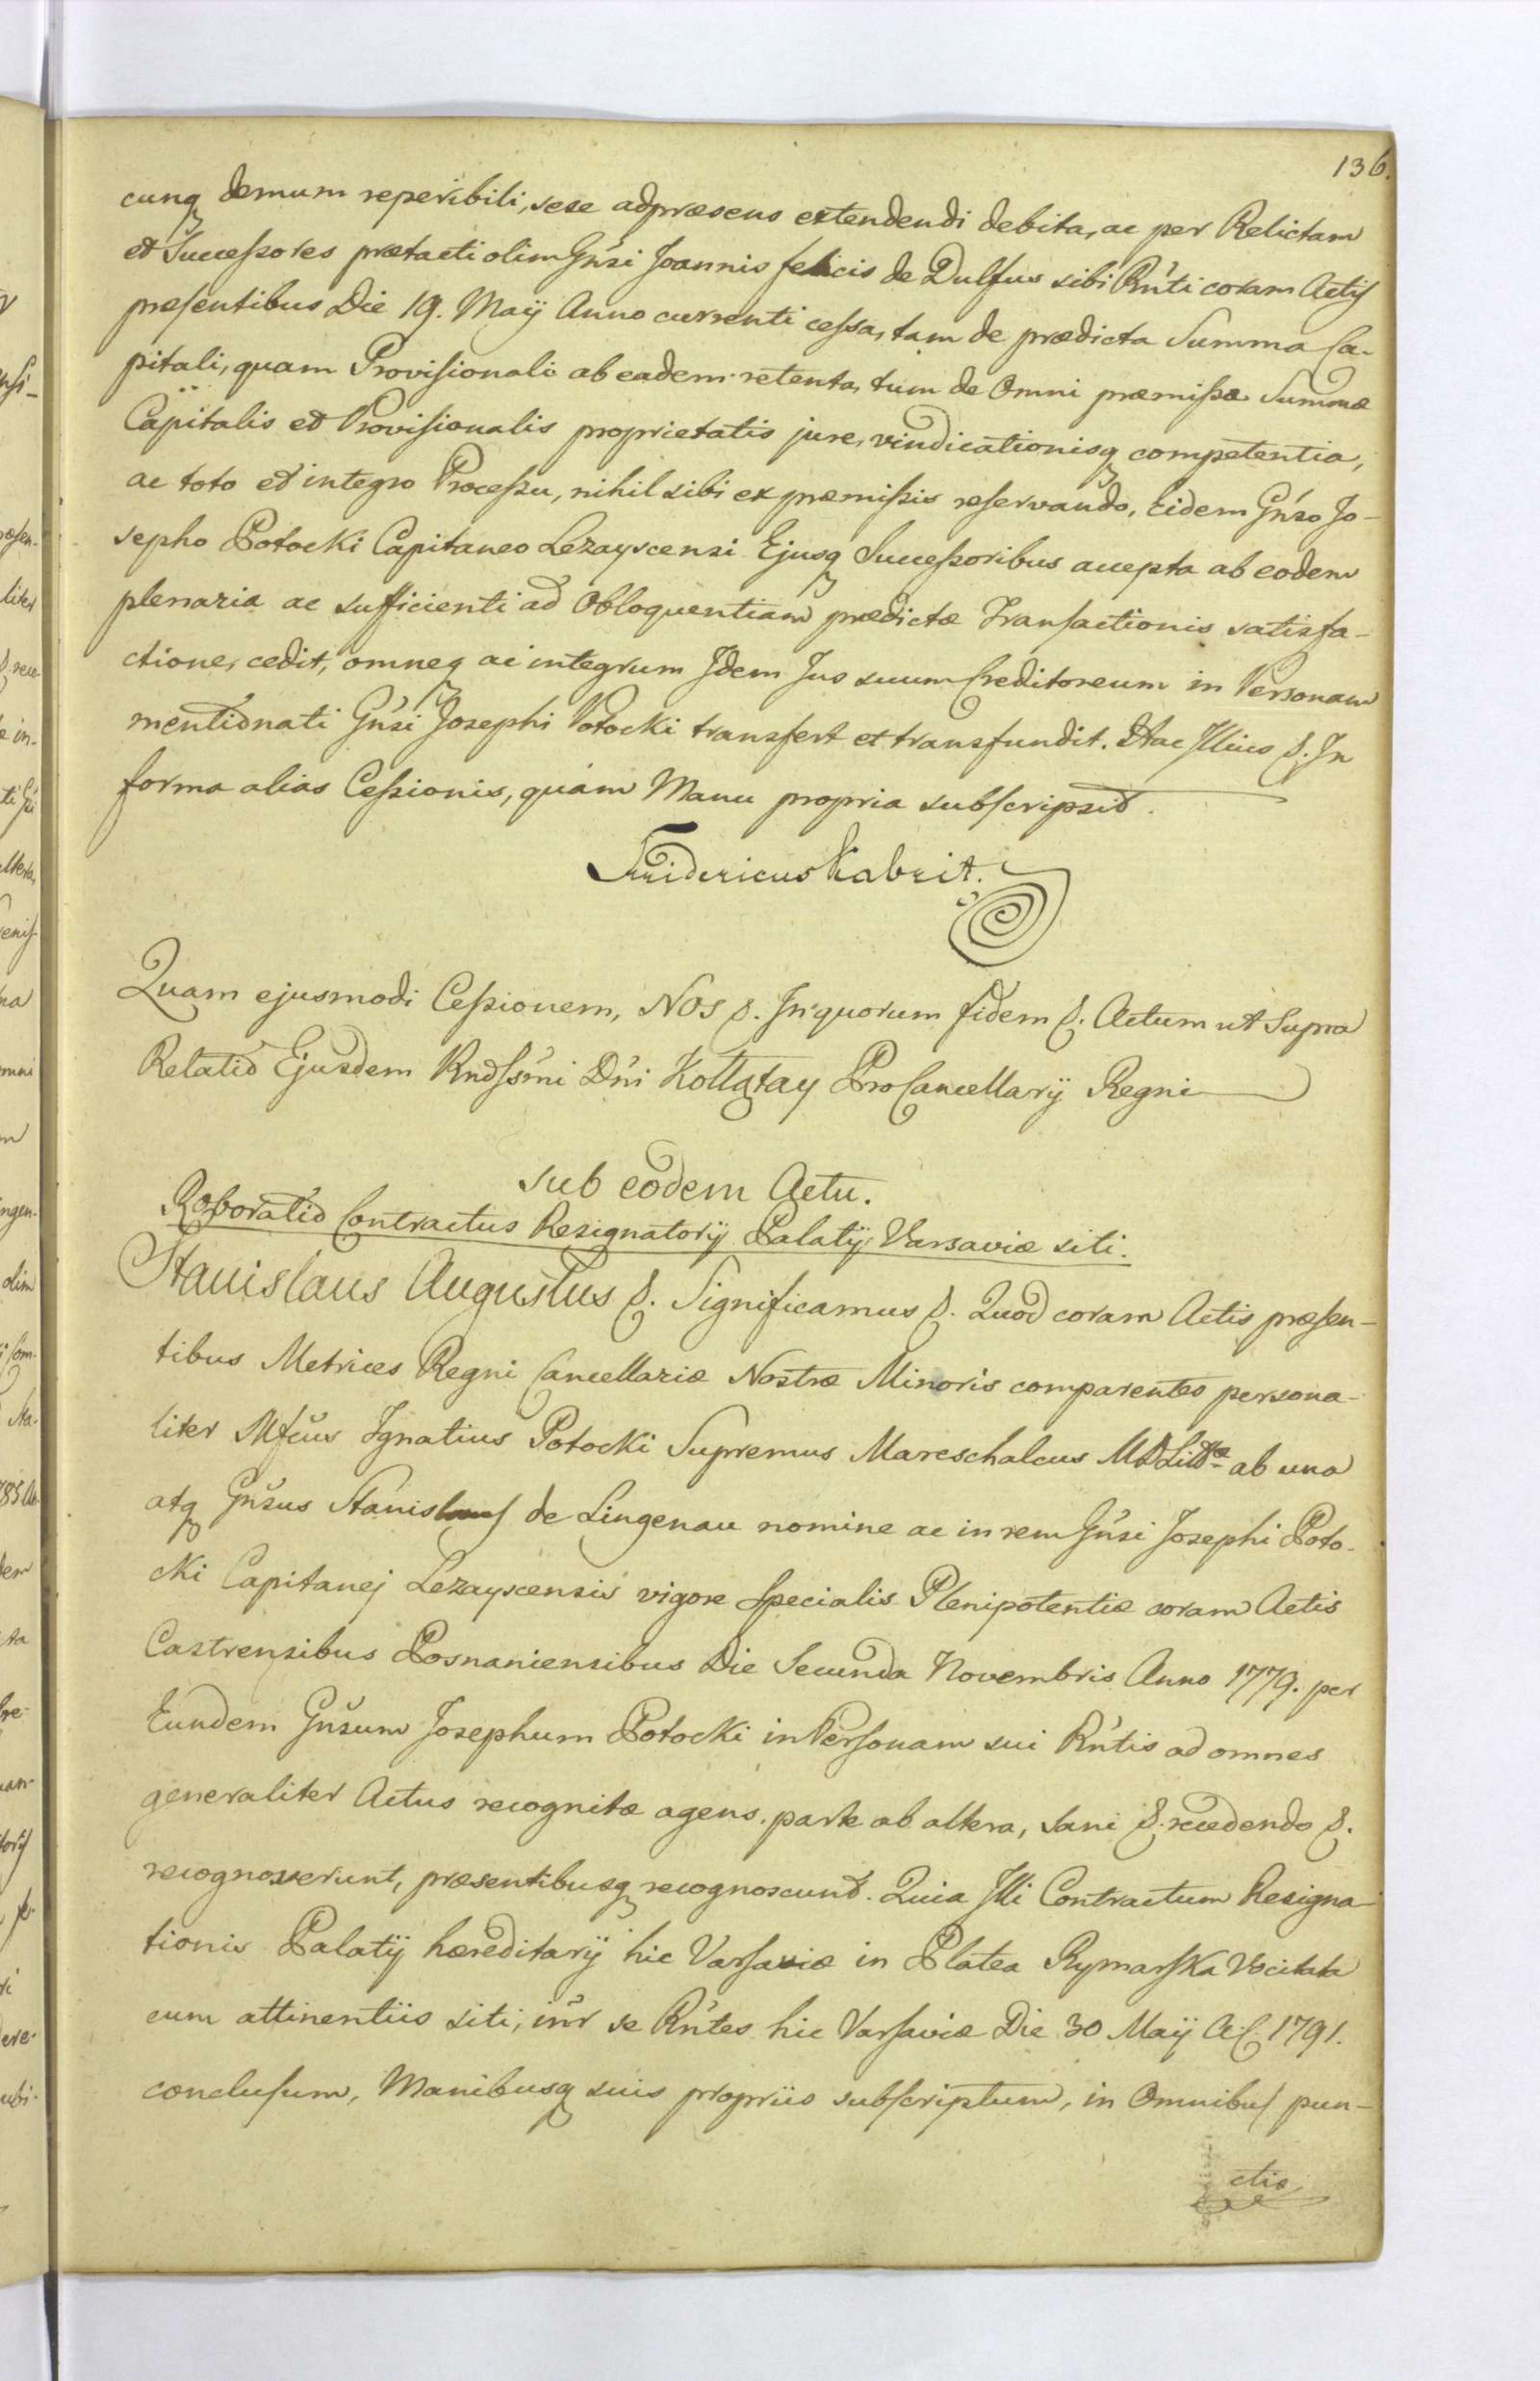 136.
cunq demum reperibili, sese adpræsens extendendi debita, ac per Relictam
et Successores prætacti olim Gnsi Joannis felicis de Dulfus sibi Rnti coram Actis
præsentibus Die 19. Maÿ Anno currenti cessa, tam de prædicta Summa Ca-
pitali, quam Provisionali ab eadem retenta, tum de Omni præmissæ Summæ
Capitalis et Provisionalis proprietatis jure, vindicationisq competentia,
ac toto et integro Processu, nihil sibi ex præmissis reservando, Eidem Gnso Jo-
sepho Potocki Capitaneo Lezayscensi Ejusq Successoribus accepta ab eodem
plenaria ac sufficienti ad Obloquentiam prædictæ Transactionis satisfa-
ctione, cedit, omneq ac integrum Idem Jus suum Creditoreum in Personam
mentionati Gnsi Josephi Potocki transfert et transfundit. Hac Illius &. In
forma alias Cessionis, quam Manu propria subscripsit.
Fridericus Kabrit.
Quam ejusmodi Cessionem, Nos &. In quorum fidem &. Actum ut Supra
Relatio Ejusdem Rndssmi Dni Kołłątay ProCancellarÿ Regni
sub eodem Actu.
Roboratio Contractus Resignatorÿ Palatÿ Varsaviæ siti.
Stanislaus Augustus &. Significamus &. Quod coram Actis præsen-
tibus Metrices Regni Cancellariæ Nostræ Minoris comparentes persona-
liter Mfcus Ignatius Potocki Supremus Mareschalcus MDLittæ ab una
atq Gnsus Stanislaus de Lingenau nomine ac in rem Gnsi Josephi Poto-
cki Capitanej Lezayscensis vigore specialis Plenipotentiæ coram Actis
Castrensibus Posnaniensibus Die Secunda Novembris Anno 1779. per
Eundem Gnsum Josephum Potocki in Personam sui Rntis ad omnes
generaliter Actus recognitæ agens. parte ab altera, sani &. recedendo &.
recognoverunt, præsentibusq recognoscunt. Quia Illi Contractum Resigna-
tionis Palatÿ hæreditarÿ hic Varsaviæ in Platea Rymarska Vocitata
cum attinentiis siti, inr se Rntes hic Varsaviæ Die 30 Maÿ A.C. 1791.
conclusum, Manibusq suis propriis subscriptum, in Omnibus pun-
ctis